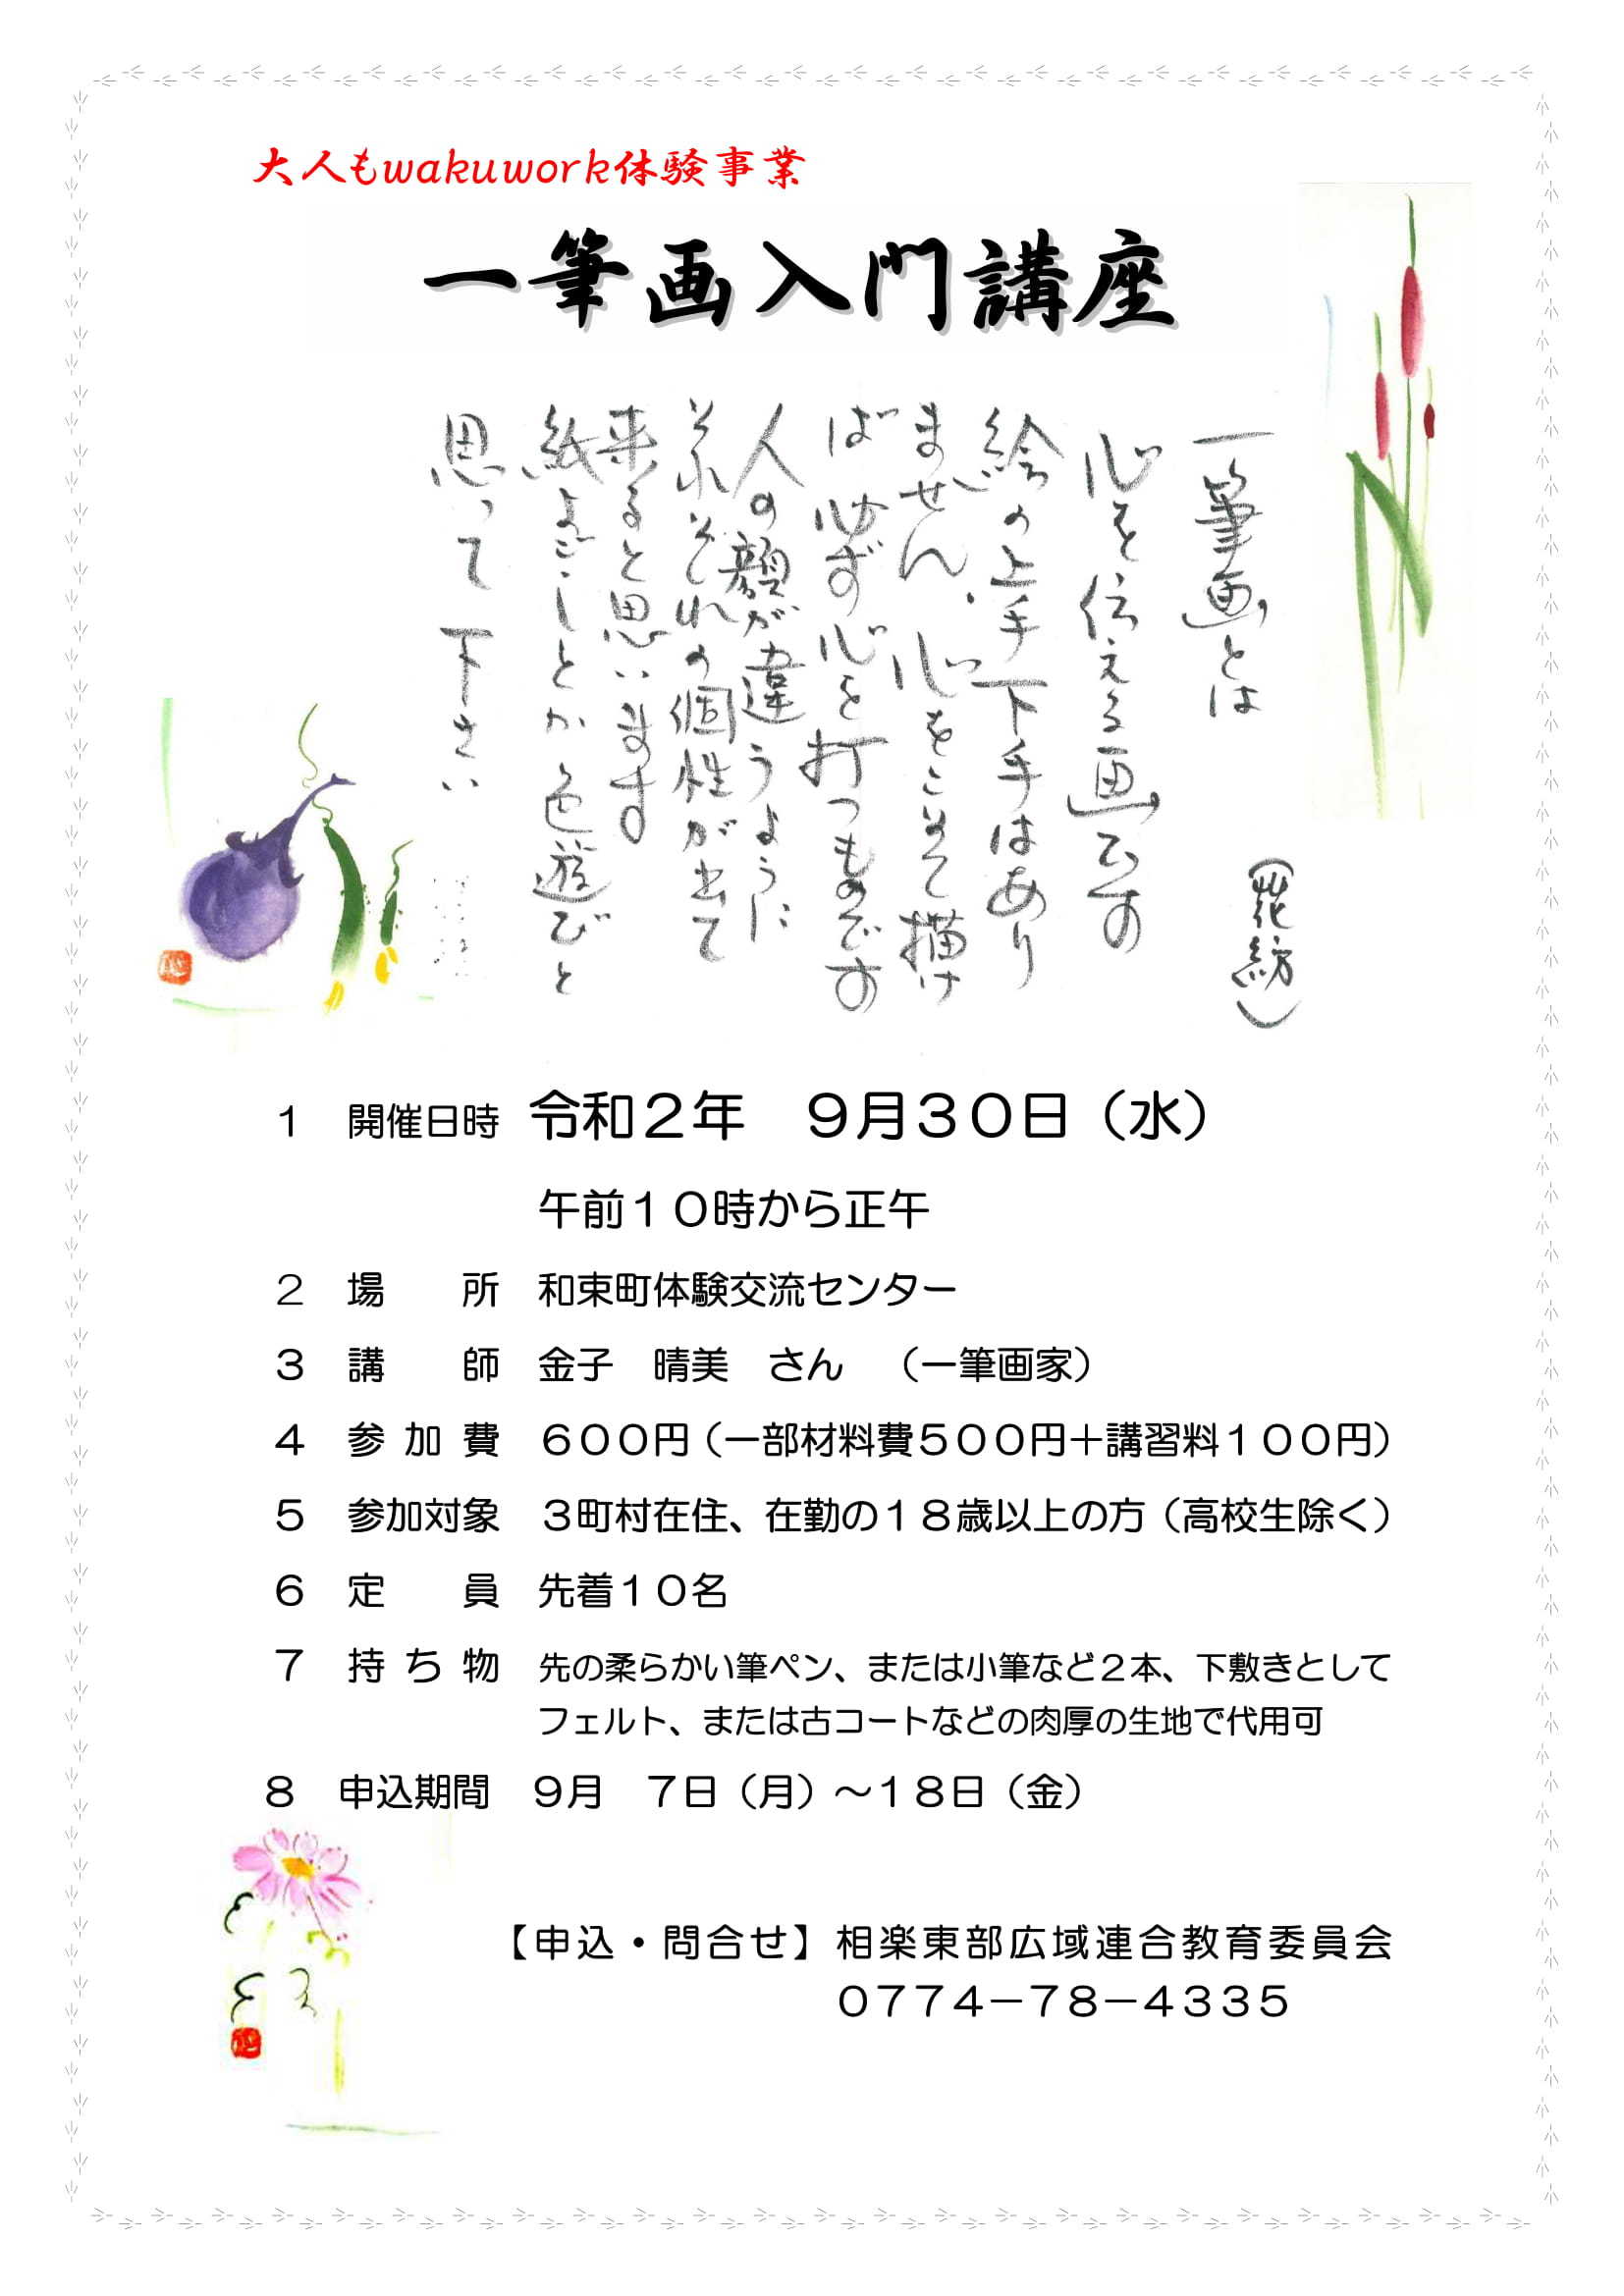 大人もwakuwork体験事業
一筆画入門講座
一筆画とは
(花紡)
心を伝える画です
絵の上手下手はあり
ません、心をこめて描け
ば必ず心を打つものです
人の顔が違うように
それぞれの個性が出て
来ると思います
紙よごしとか色遊びと
思って下さい
1 開催日時 令和2年 9月30日(水)
午前10時から正午
2 場 所 和束町体験交流センター
3 講 師 金子 晴美 さん (一筆画家)
4 参加費 600円(一部材料費500円+講習料100円)
5 参加対象 3町村在住、在勤の18歳以上の方(高校生除く)
6 定 員 先着10名
7 持ち物 先の柔らかい筆ペン、または小筆など2本、下敷きとして
フェルト、または古コートなどの肉厚の生地で代用可
8 申込期間 9月 7日(月)~18日(金)
【申込・問合せ】相楽東部広域連合教育委員会
0774-78-4335